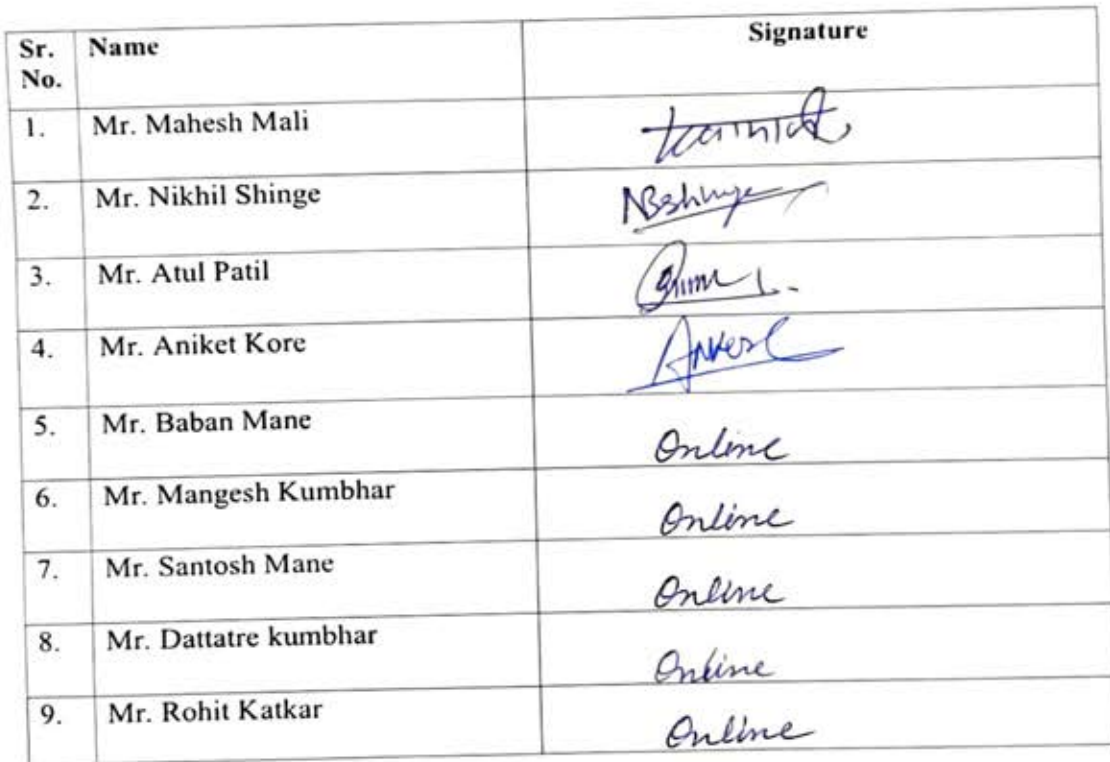 Sr. No. Name Signature
1. Mr. Mahesh Mali
2. Mr. Nikhil Shinge NBshinge
3. Mr. Atul Patil
4. Mr. Aniket Kore
5. Mr. Baban Mane Online
6. Mr. Mangesh Kumbhar Online
7. Mr. Santosh Mane Online
8. Mr. Dattatre kumbhar Online
9. Mr. Rohit Katkar Online